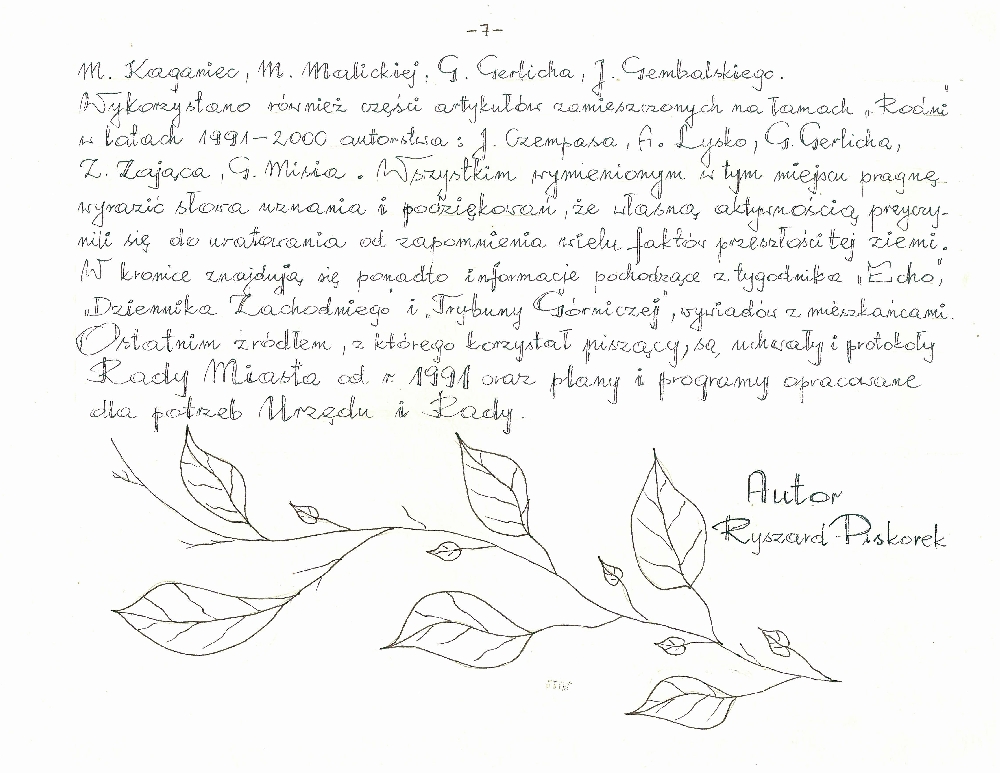 -7-
M. Kaganiec, M. Malickiej, G. Gerlicha, J. Gembalskiego.
Wykorzystano również części artykułów zamieszczonych na łamach „Rodni"
w latach 1991-2000 autorstwa: J. Czempasa, A. Lysko, G. Gerlicha,
Z. Zająca, G. Misia. Wszystkim wymienionym w tym miejscu pragnę
wyrazić słowa uznania i podziękowań, że własną aktywnością przyczy-
nili się do uratowania od zapomnienia wielu faktów przeszłości tej ziemi.
W kronice znajdują się ponadto informacje pochodzące z tygodnika „Echo",
„Dziennika Zachodniego i „Trybuny Górniczej", wywiadów z mieszkańcami.
Ostatnim źródłem, z którego korzystał piszący, są uchwały i protokoły
Rady Miasta od r. 1991 oraz plany i programy opracowane
dla potrzeb Urzędu i Rady.
Autor
Ryszard Piskorek